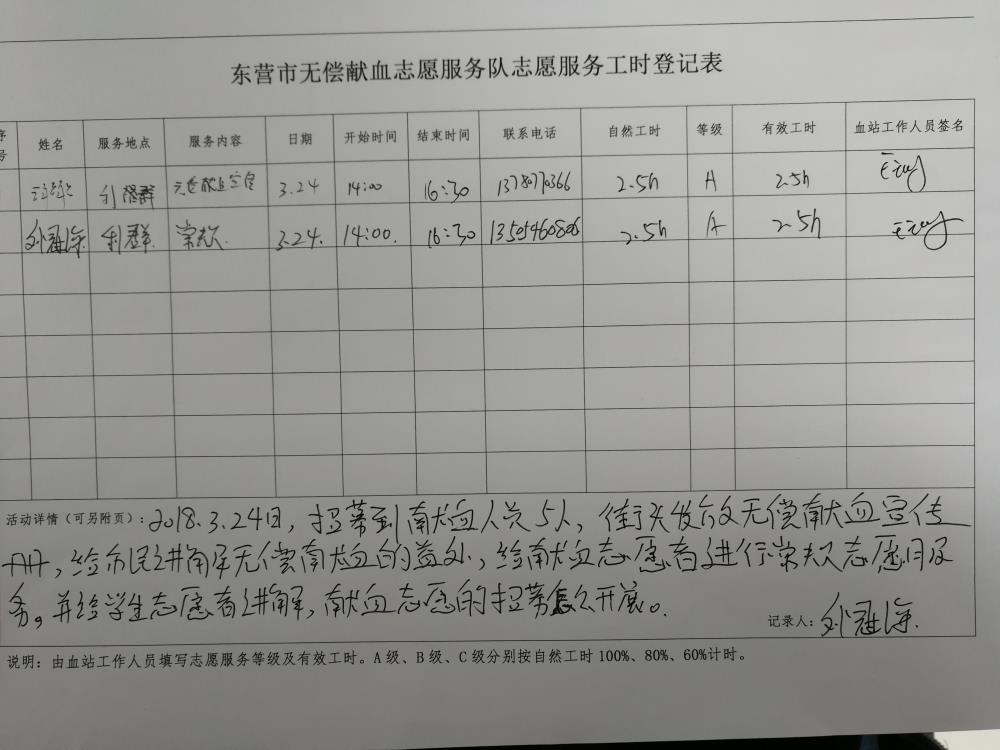 东营市无偿献血志愿服务队志愿服务工时登记表
序号 姓名 服务地点 服务内容 日期 开始时间 结束时间 联系电话 自然工时 等级 有效工时 血站工作人员签名
利群 无偿献血宣传 3.24 14:00 16:30 13780770366 2.5h A 2.5h
刘雅琼 利群 常规 3.24. 14:00. 16:30 13505460806 2.5h A 2.5h
活动详情（可另附页）：2018.3.24日，招募到献血人员5人，街头发放无偿献血宣传
册，给市民讲解无偿献血的益处，给献血志愿者进行常规志愿服
务。并给学生志愿者讲解，献血志愿的招募怎么开展。
记录人：刘雅琼.
说明：由血站工作人员填写志愿服务等级及有效工时。A级、B级、C级分别按自然工时100%、80%、60%计时。